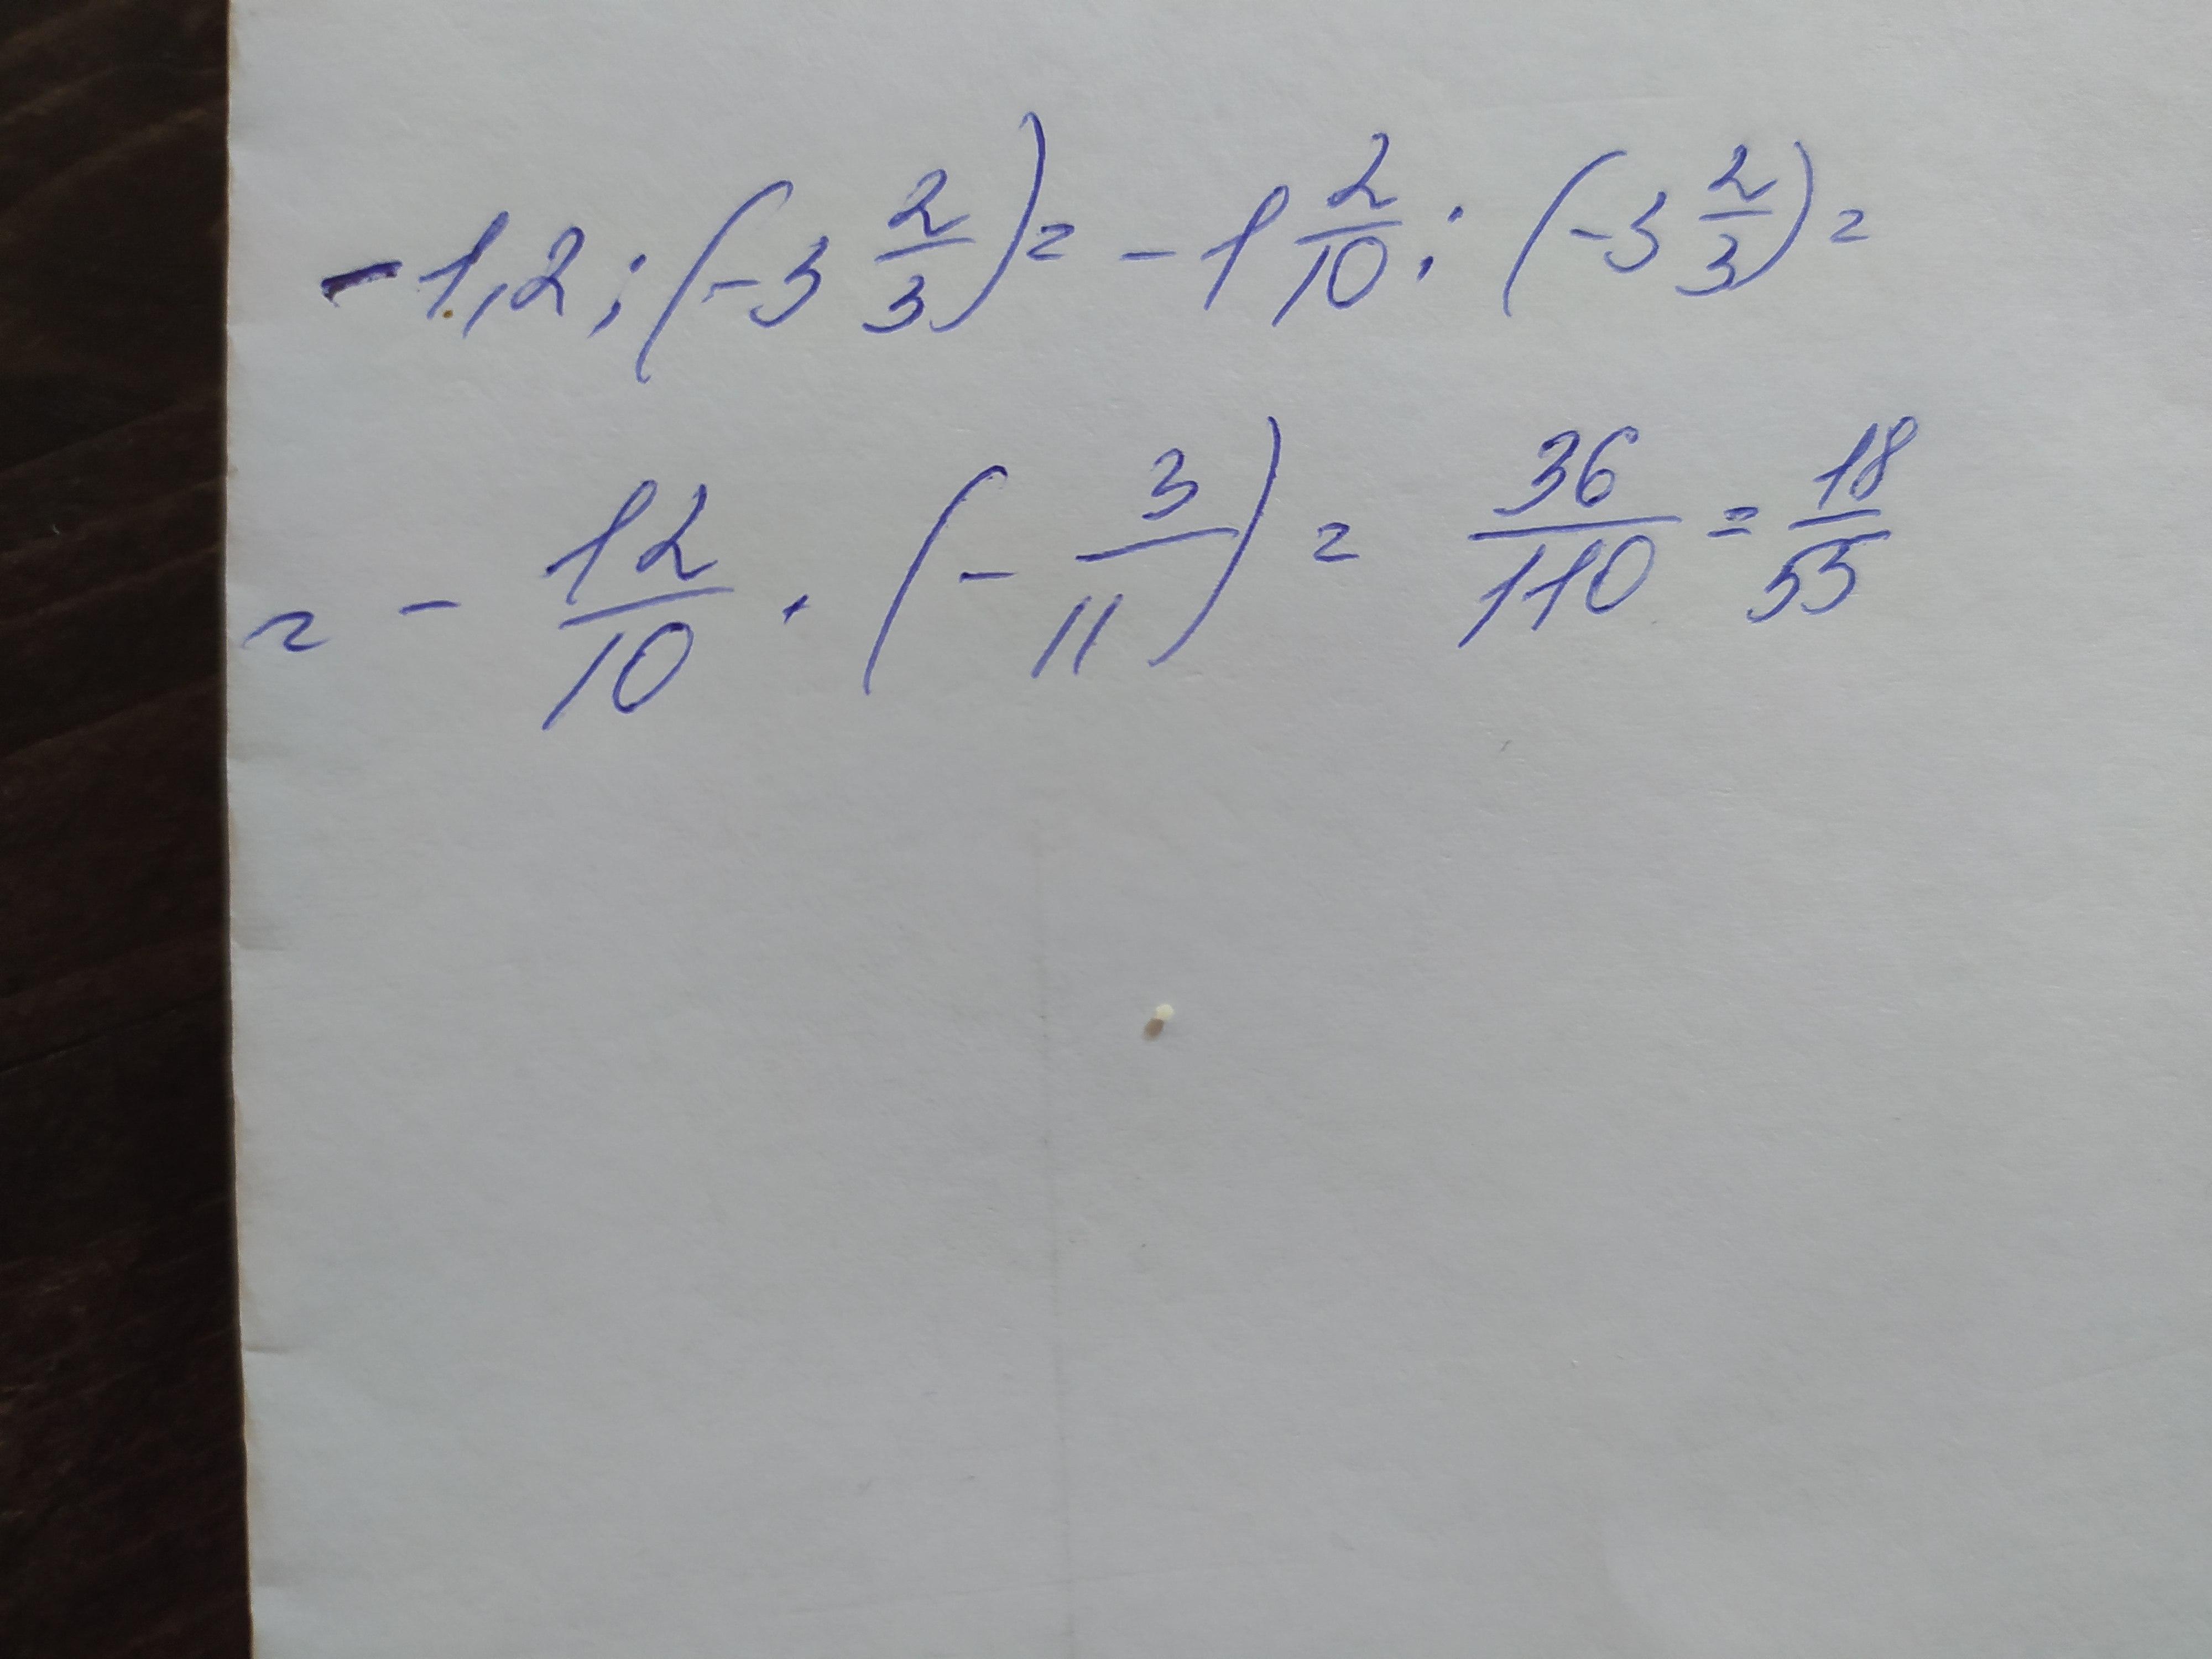 -1,2 : (-3 2/3) = -1 2/10 : (-3 2/3) =
= - 12/10 · (- 3/11) = 36/110 = 18/55